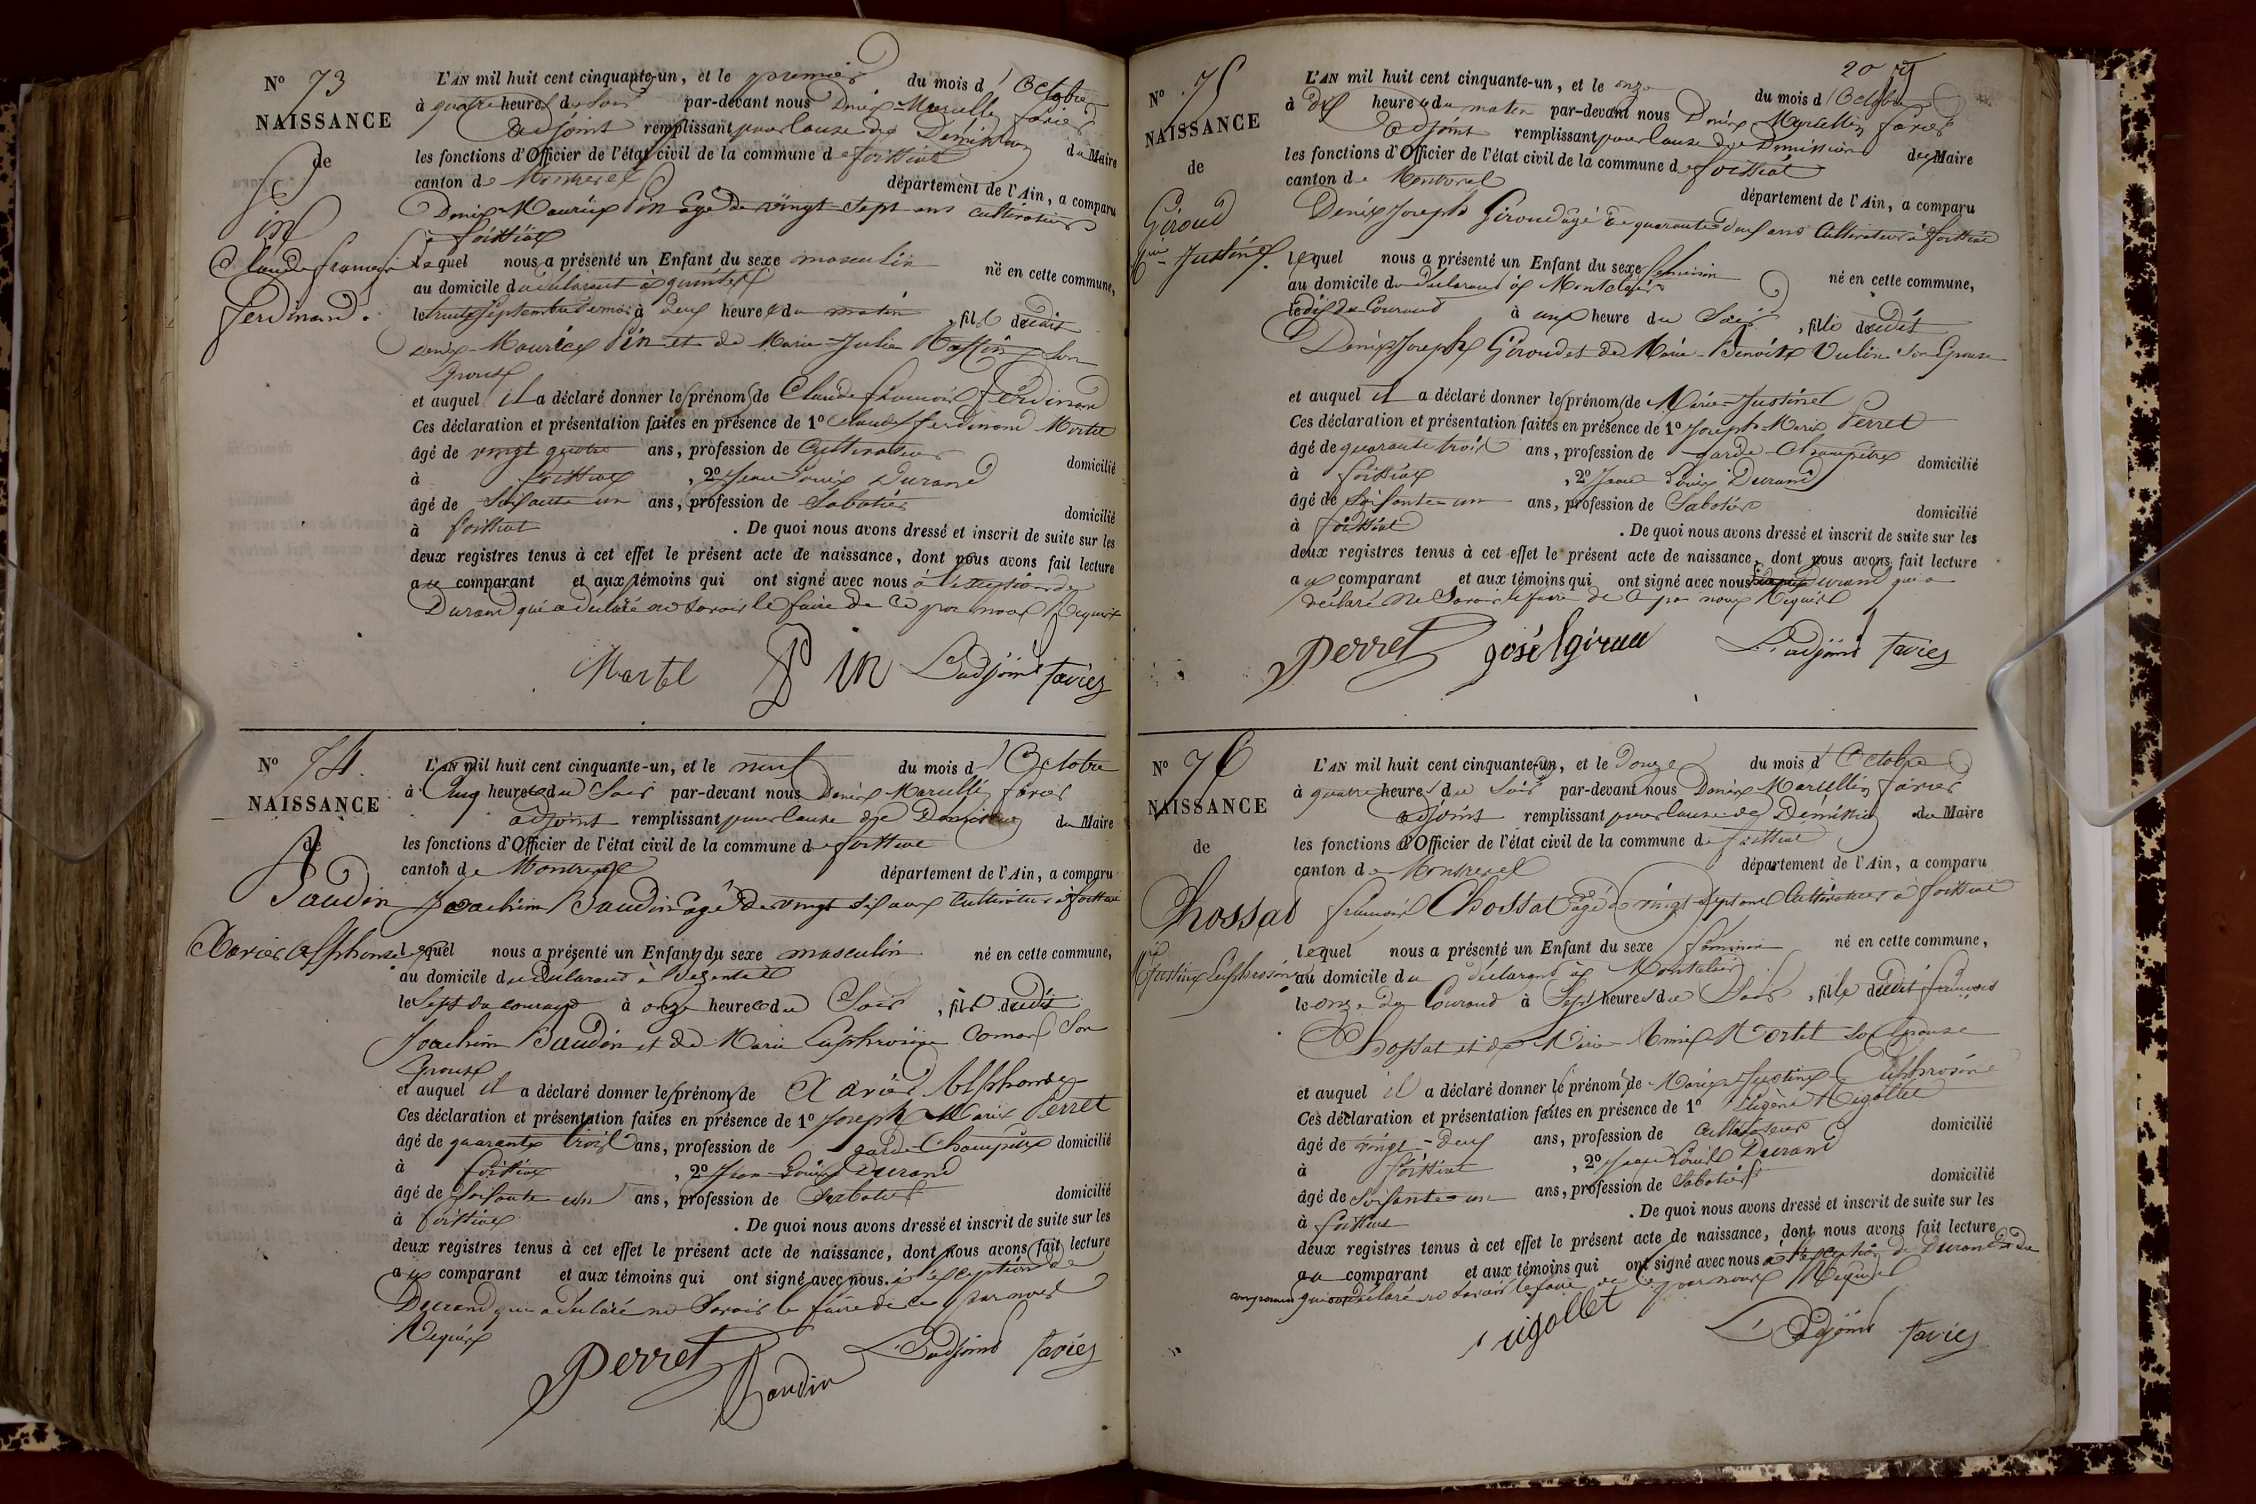 N° 73
NAISSANCE
de
Pin
Claude françois
ferdinand.
L'AN mil huit cent cinquante-un, et le premier du mois d'Octobre
à quatre heures du soir par-devant nous Denix Marcellin favier
adjoint remplissant pour cause de Démission du Maire
les fonctions d'Officier de l'état civil de la commune de foissiat
canton de Montrevel département de l'Ain, a comparu
Denix Maurice Pin agé de vingt sept ans cultivateur
à foissiat
Lequel nous a présenté un Enfant du sexe masculin né en cette commune,
au domicile du déclarant à
le trente Septembre dernier à deux heures du matin, fils dudit
Denix Maurice Pin et de Marie Julie son
Epouse
et auquel il a déclaré donner les prénoms de Claude françois ferdinand
Ces déclaration et présentation faites en présence de 1° Claude ferdinand Martel
âgé de vingt quatre ans, profession de Cultivateur domicilié
à foissiat, 2° Jean Louis Durand
âgé de Soixante un ans, profession de Sabotier domicilié
à foissiat. De quoi nous avons dressé et inscrit de suite sur les
deux registres tenus à cet effet le présent acte de naissance, dont nous avons fait lecture
au comparant et aux témoins qui ont signé avec nous à l'exception de
Durand qui a déclaré ne savoir le faire de ce par nous Requis
Martel Pin L'adjoint favier
N° 74.
NAISSANCE
de
Baudin
Xavier Alphonse
L'AN mil huit cent cinquante-un, et le neuf du mois d'Octobre
à Cinq heures du Soir par-devant nous Denix Marcellin favier
adjoint remplissant pour cause de Démission du Maire
les fonctions d'Officier de l'état civil de la commune de foissiat
canton de Montrevel département de l'Ain, a comparu
Joachim Baudin agé de vingt six ans Cultivateur à foissiat
Lequel nous a présenté un Enfant du sexe masculin né en cette commune,
au domicile du déclarant à
le Sept du courant à onze heures du Soir, fils dudit
Joachim Baudin et de Marie Euphrosine Son
Epouse
et auquel il a déclaré donner les prénoms de Xavier Alphonse
Ces déclaration et présentation faites en présence de 1° Joseph Marie Perret
âgé de quarante trois ans, profession de garde Champêtre domicilié
à foissiat, 2° Jean Louis Durand
âgé de Soixante un ans, profession de Sabotier domicilié
à foissiat. De quoi nous avons dressé et inscrit de suite sur les
deux registres tenus à cet effet le présent acte de naissance, dont nous avons fait lecture
au comparant et aux témoins qui ont signé avec nous à l'exception de
Durand qui a déclaré ne Savoir le faire de ce par nous
Requis
Perret Baudin L'adjoint favier
N° 75
NAISSANCE
de
Giroud
Justine.
L'AN mil huit cent cinquante-un, et le onze du mois d'Octobre
à dix heures du matin par-devant nous Denix Marcellin favier
adjoint remplissant pour cause de Démission du Maire
les fonctions d'Officier de l'état civil de la commune de foissiat
canton de Montrevel département de l'Ain, a comparu
Denix Joseph Giroud agé de quarante deux ans Cultivateur à foissiat
lequel nous a présenté un Enfant du sexe féminin né en cette commune,
au domicile du déclarant à
le dix du Courant à une heure du Soir, fille dudit
Denix Joseph Giroud et de Marie Benoite Vulin Son Epouse
et auquel il a déclaré donner les prénoms de Marie Justine
Ces déclaration et présentation faites en présence de 1° Joseph Marie Perret
âgé de quarante trois ans, profession de garde Champêtre domicilié
à foissiat, 2° Jean Louis Durand
âgé de Soixante un ans, profession de Sabotier domicilié
à foissiat. De quoi nous avons dressé et inscrit de suite sur les
deux registres tenus à cet effet le présent acte de naissance, dont nous avons fait lecture
au comparant et aux témoins qui ont signé avec nous Durand qui a
déclaré ne Savoir le faire de ce par nous Requis
Perret L'adjoint favier
N° 76
NAISSANCE
de
Chossat
L'AN mil huit cent cinquante-un, et le Douze du mois d'Octobre
à quatre heures du Soir par-devant nous Denix Marcellin favier
adjoint remplissant pour cause de Démission du Maire
les fonctions d'Officier de l'état civil de la commune de foissiat
canton de Montrevel département de l'Ain, a comparu
françois Chossat agé de vingt sept ans Cultivateur à foissiat
lequel nous a présenté un Enfant du sexe féminin né en cette commune,
au domicile du déclarant à
le onze du Courant à Sept heures du Soir, fille dudit françois
Chossat et de Marie Mortel son Epouse
et auquel il a déclaré donner les prénoms de Marie Justine Euphrosine
Ces déclaration et présentation faites en présence de 1° Rigollet
âgé de vingt-deux ans, profession de Cultivateur domicilié
à foissiat, 2° Jean Louis Durand
âgé de Soixante-un ans, profession de Sabotier domicilié
à foissiat. De quoi nous avons dressé et inscrit de suite sur les
deux registres tenus à cet effet le présent acte de naissance, dont nous avons fait lecture
au comparant et aux témoins qui ont signé avec nous à l'exception de Durand et du
comparant qui ont déclaré ne savoir le faire de ce par nous Requis
rigollet L'adjoint favier